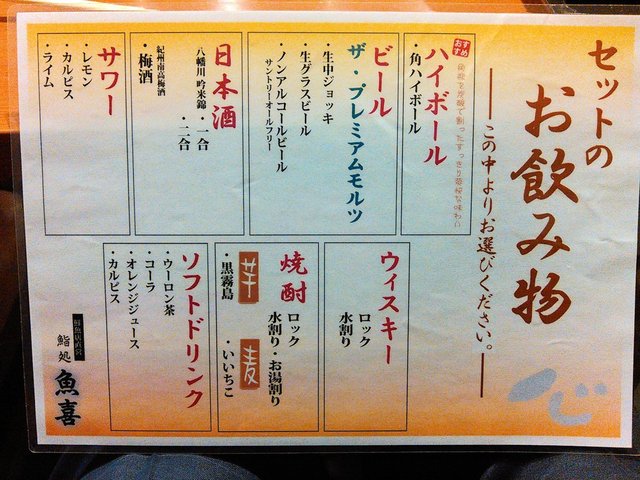 セットの
お飲み物
この中よりお選びください。
おすすめ
ハイボール
・角ハイボール
ビール
ザ・プレミアムモルツ
・生中ジョッキ
・生グラスビール
・ノンアルコールビール
サントリーオールフリー
日本酒
八幡川 吟米錦・一合
・二合
紀州南高梅酒
・梅酒
サワー
・レモン
・カルピス
・ライム
ウィスキー
ロック
水割り
焼酎
ロック
水割り・お湯割り
芋
・黒霧島
麦
・いいちこ
ソフトドリンク
・ウーロン茶
・コーラ
・オレンジジュース
・カルピス
鮮魚店直営
鮨処 魚喜